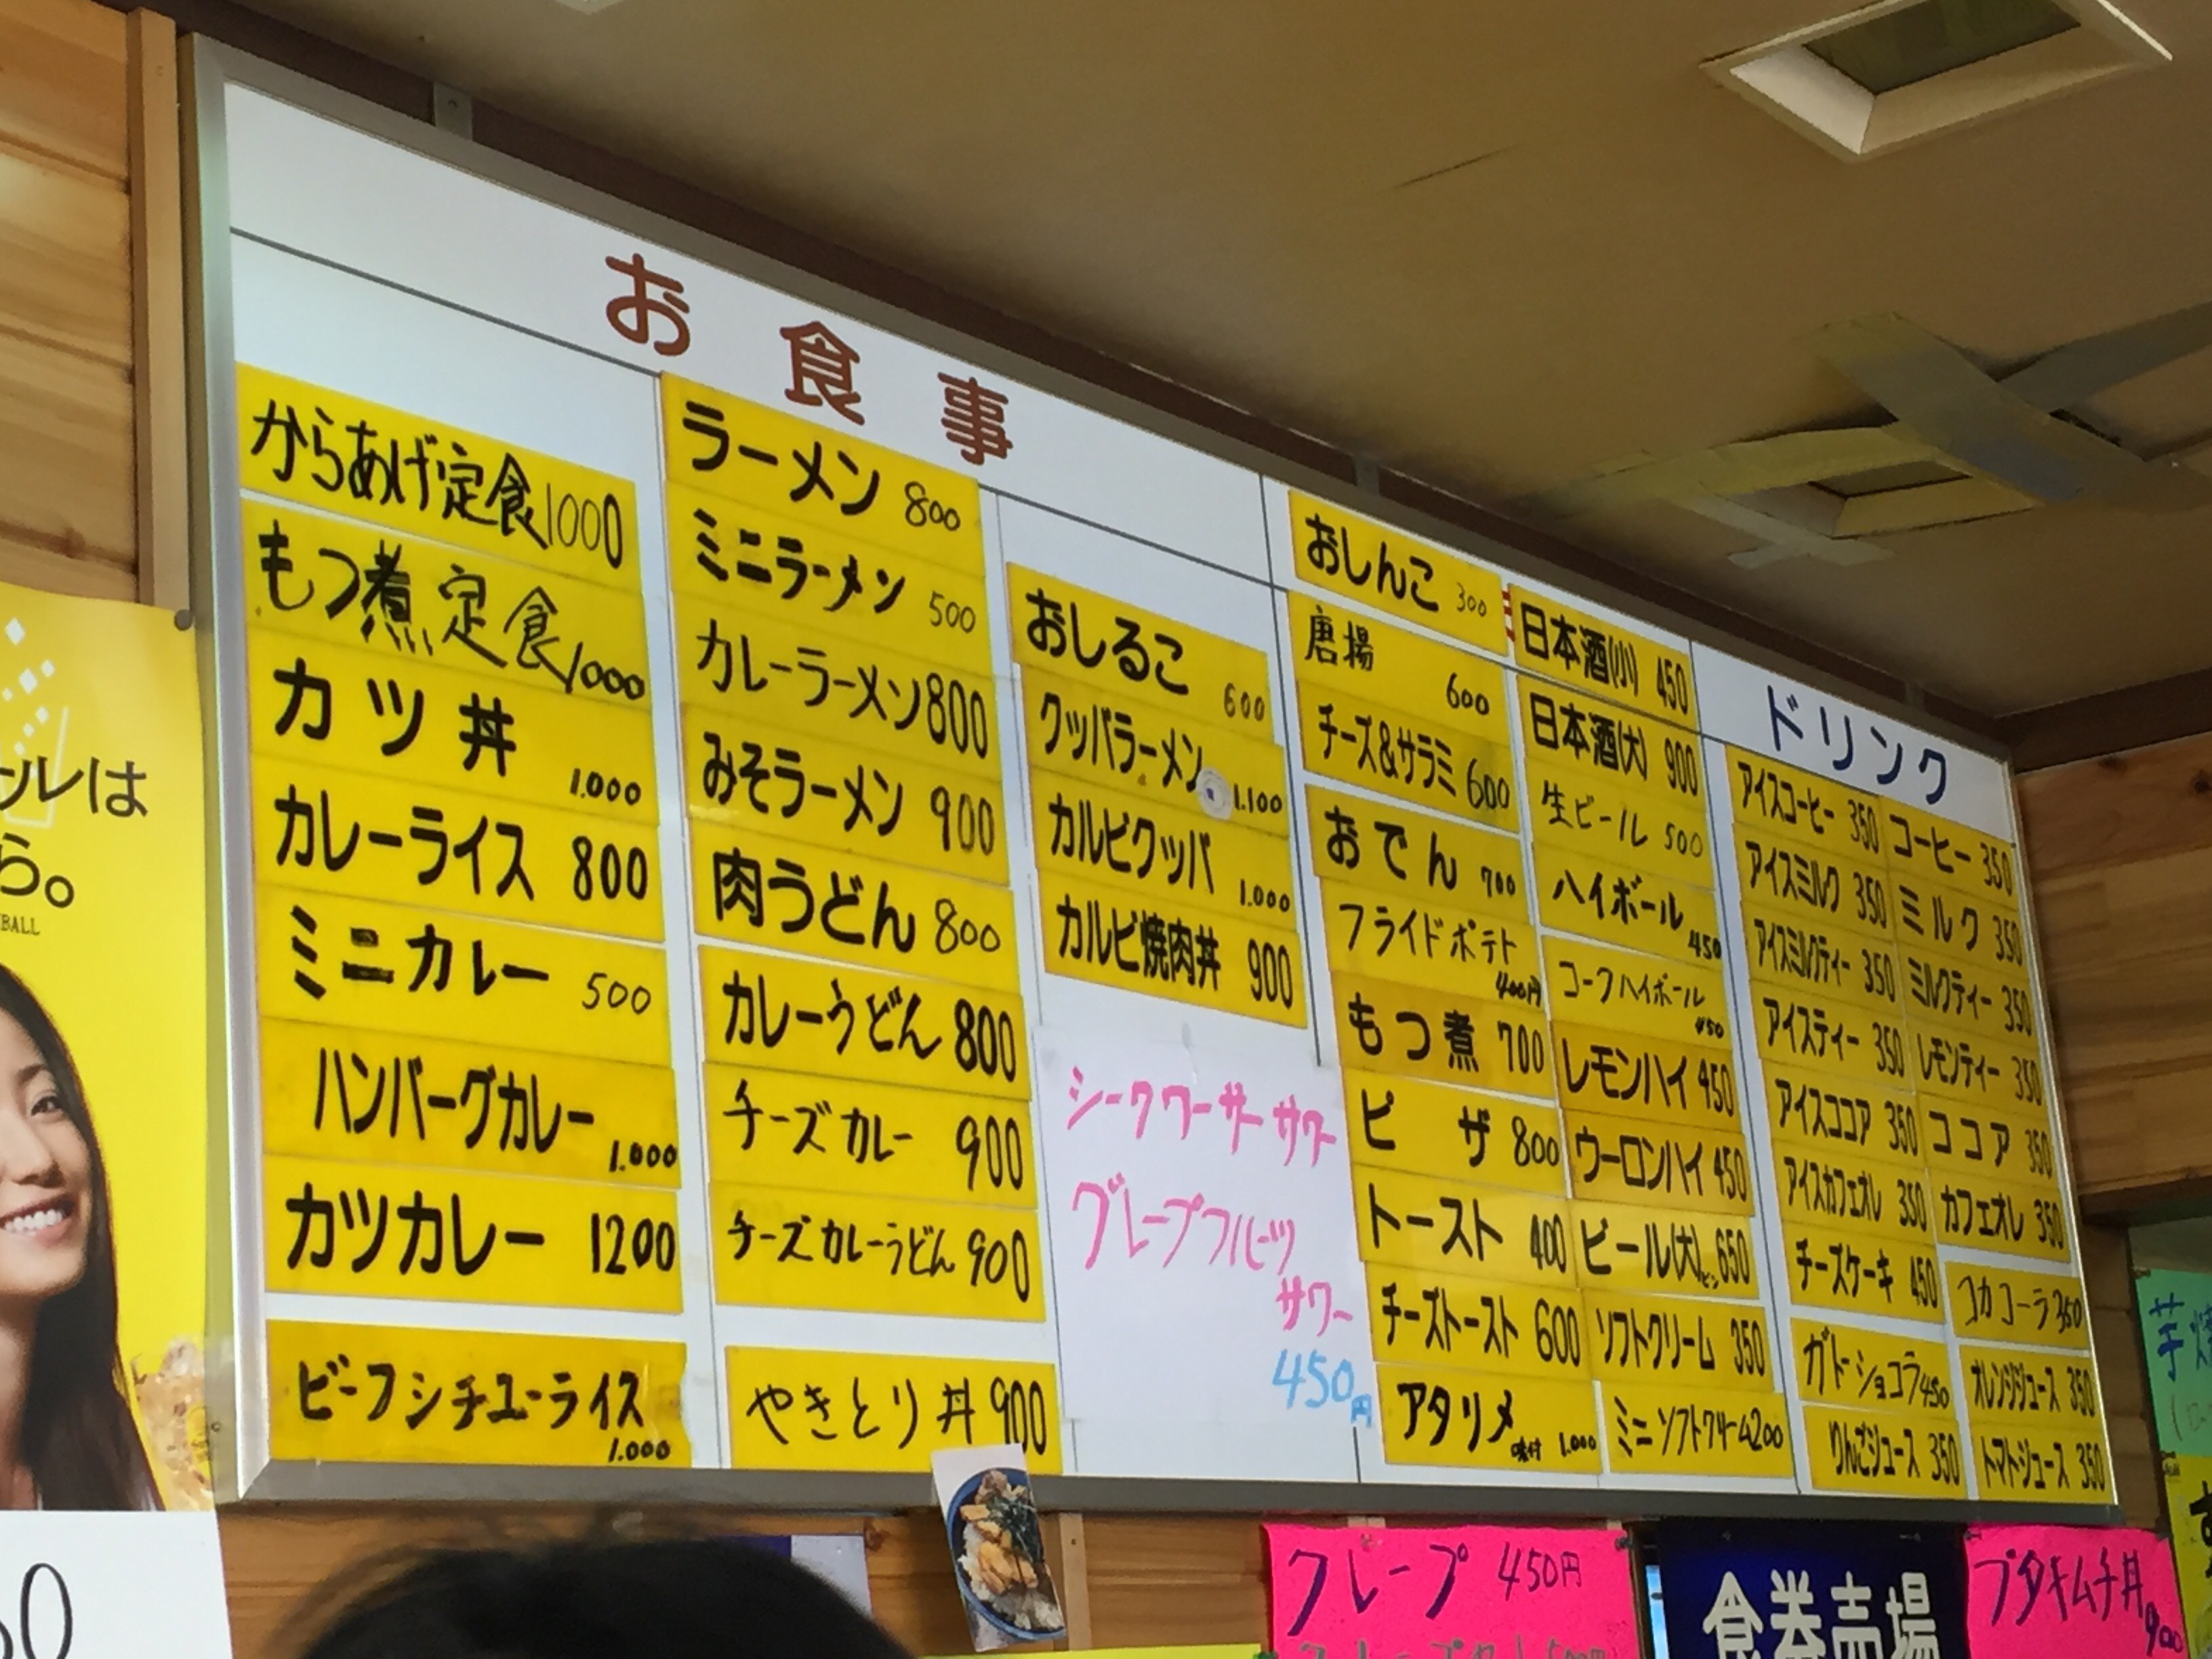 お食事
からあげ定食 1000
もつ煮定食 1000
カツ丼 1.000
カレーライス 800
ミニカレー 500
ハンバーグカレー 1.000
カツカレー 1200
ビーフシチューライス 1.000
ラーメン 800
ミニラーメン 500
カレーラーメン 800
みそラーメン 900
肉うどん 800
カレーうどん 800
チーズカレー 900
チーズカレーうどん 900
やきとり丼 900
おしるこ 600
クッパラーメン 1.100
カルビクッパ 1.000
カルビ焼肉丼 900
シークワーサーサワー
グレープフルーツ
サワー
450円
おしんこ 300
唐揚 600
チーズ&サラミ 600
おでん 700
フライドポテト 400円
もつ煮 700
ピザ 800
トースト 400
チーズトースト 600
アタリメ 味付 1.000
日本酒(小) 450
日本酒(大) 900
生ビール 500
ハイボール 450
コークハイボール 450
レモンハイ 450
ウーロンハイ 450
ビール(大)ビン 650
ソフトクリーム 350
ミニソフトクリーム 200
ドリンク
アイスコーヒー 350
アイスミルク 350
アイスミルクティー 350
アイスティー 350
アイスココア 350
アイスカフェオレ 350
チーズケーキ 450
ガトーショコラ 450
りんごジュース 350
コーヒー 350
ミルク 350
ミルクティー 350
レモンティー 350
ココア 350
カフェオレ 350
コカコーラ 350
オレンジジュース 350
トマトジュース 350
ールは
ら。
BALL
クレープ 450円
食券売場
ブタキムチ丼 900